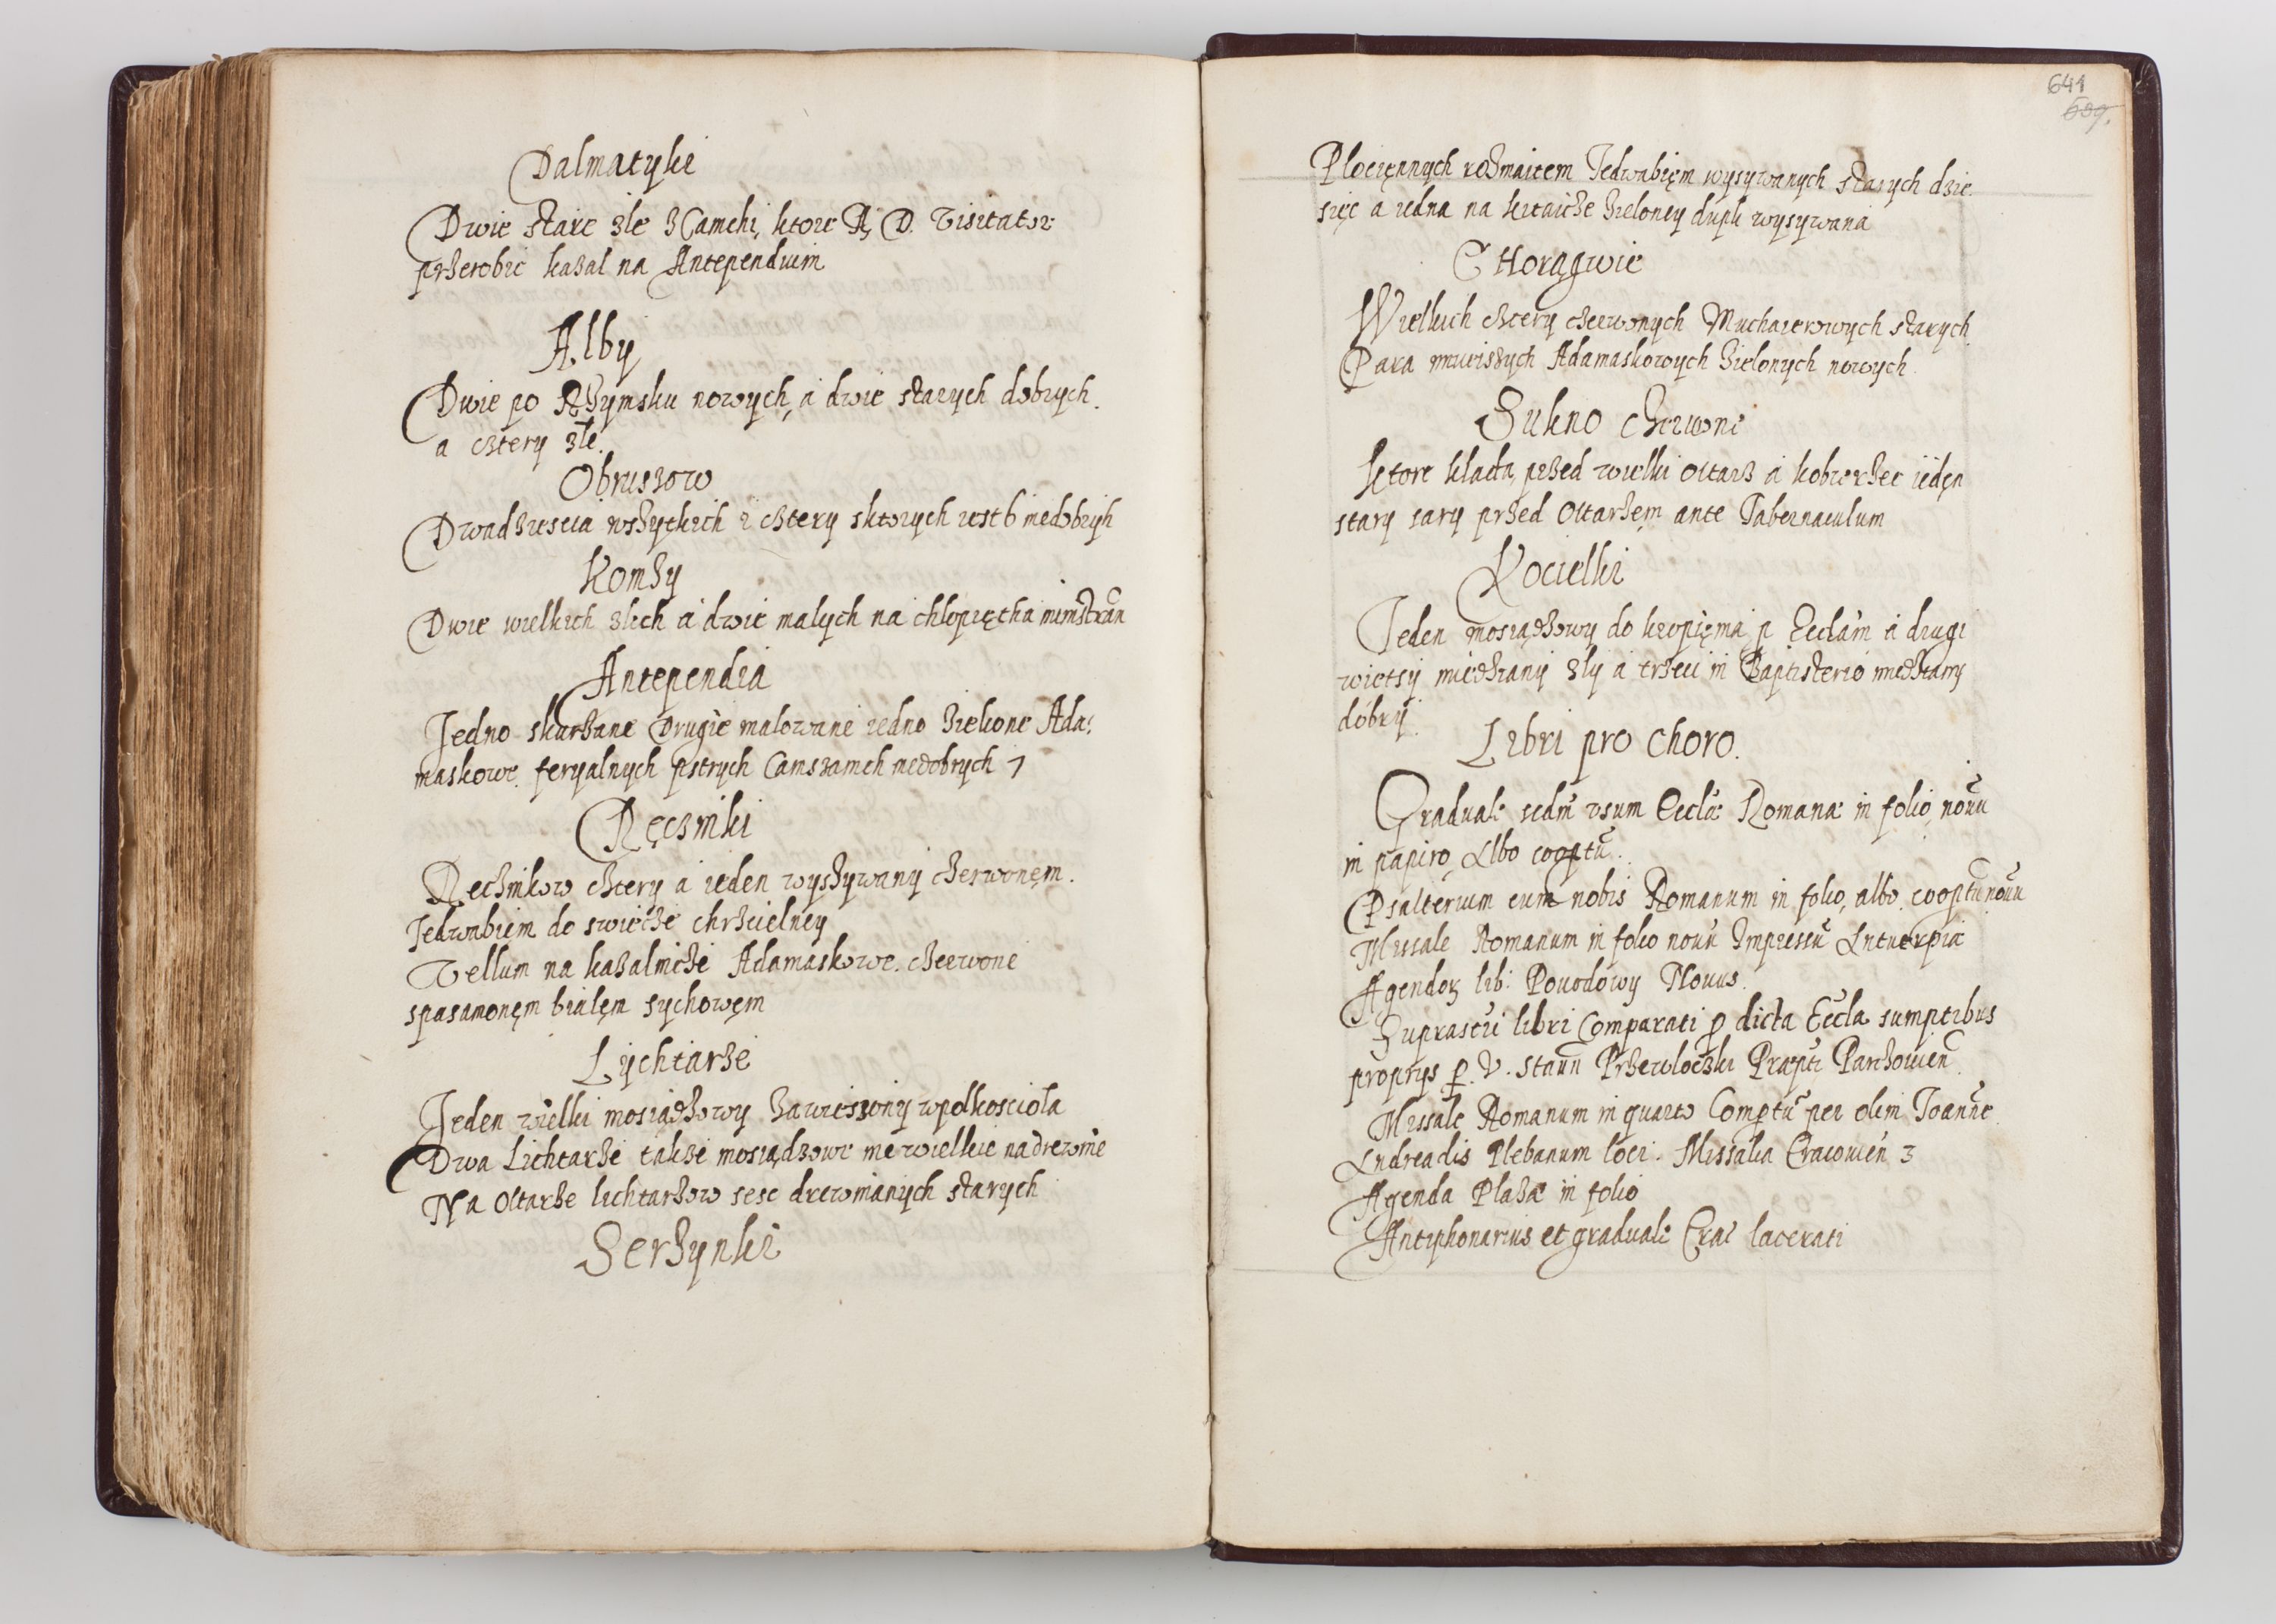 Dalmatyki
Dwie stare zle z Camchi, ktore A. D. Visitator
przerobic kazal na Antependium
Alby
Dwie po Rzymsku nowych, a dwie starych dobrych.
a cztery zle.
Obruszow
Dwadziescia wszytkich i cztery sktorych iest 6 niedobrych
Komzy
Dwie wielkich zlich a dwie malych na chlopięcha ministran
Antependia
Jedno skurzane Drugie malowane iedno zielone Ada:
maskowe. feryalnych pstrych niedobrych 7
Ręczniki
Recznikow cztery a ieden wyszywany czerwonęm.
Jedwabiem do swiecze chrzcielney
Vellum na kazalnicze Adamaskowe. czerwone
spasamonęm bialęm sychowęm
Lychtarze
Jeden wielki mosiądzowy zawieszony wpolkosciola
Dwa Lichtarze takze mosiądzowe niewielkie nadrewnie
Na Oltarze lichtarzow sesc drewnianych starych
Serzynki
641
639.
Plocięnnych rozmaitem Jedwabięm wysywanych starych dzie
sięc a iedna na kitaicze zieloney dupli wysywana
CHorągwie
Wielkich cztery czerwonych Muchaierowych starych.
Para mnieiszych Adamaskowych zielonych nowych.
Sukno czerwone
ktore klada, przed wielki oltarz a kobierzec iedęn
stary sary przed Oltarzęm ante Tabernaculum
Kocielki
Jeden mosiądzowy do kropięnia p Ecclam a drugi
wietsy miedziany zly a trzeci in Baptisterio miedziany
dobry.
Libri pro Choro.
Graduale scdm usum Eccle Romanæ in folio, nouu
in papiro, Albo cooptu.
Psalterium cum nobis Romanum in folio, albo cooptu nouu
Missale Romanum in folio nouu Impressu Antuerpiæ
Agendoꝝ lib: Pouodowy Nouus.
Suprascti libri Comparati p dicta Eccla sumptibus
proprys p. V. Stann Przewloczki Præpti Parzowien
Missale Romanum in quarto Comptu per olim Joanne
Andreadis Plebanum loci. Missalia Cracouien 3
Agenda Plazæ in folio
Antiphonarius et graduale Crac lacerati